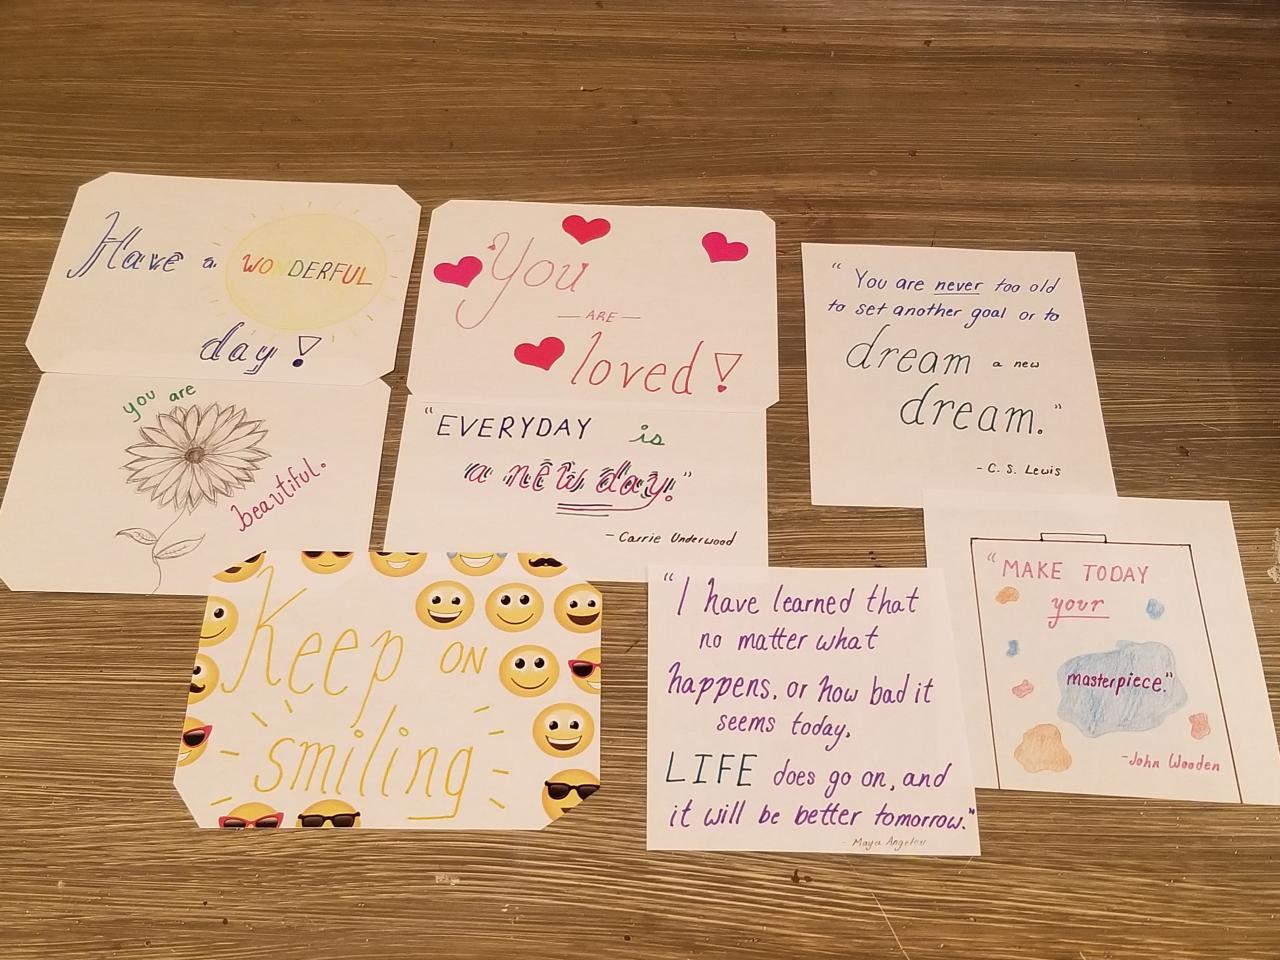 Have a WONDERFUL
day!
You
ARE
loved!
"You are never too old
to set another goal or to
dream a new
dream."
- C. S. Lewis
you are
beautiful.
"EVERYDAY is
a new day."
- Carrie Underwood
Keep ON
smiling
"I have learned that
no matter what
happens, or how bad it
seems today,
LIFE does go on, and
it will be better tomorrow."
- Maya Angelou
"MAKE TODAY
your
masterpiece."
-John Wooden